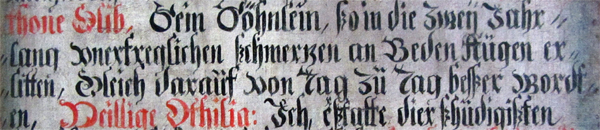 thone Olib, Sein Söhnlein, so in die Zweÿ Jahr„
lang vnerfreglichen schmertzen an Beden Augen er„
litten, Gleich darauf von Tag zu Tag besser Word„
en, Heillige Othilia: Ich, erstatte, dier schuldigisten